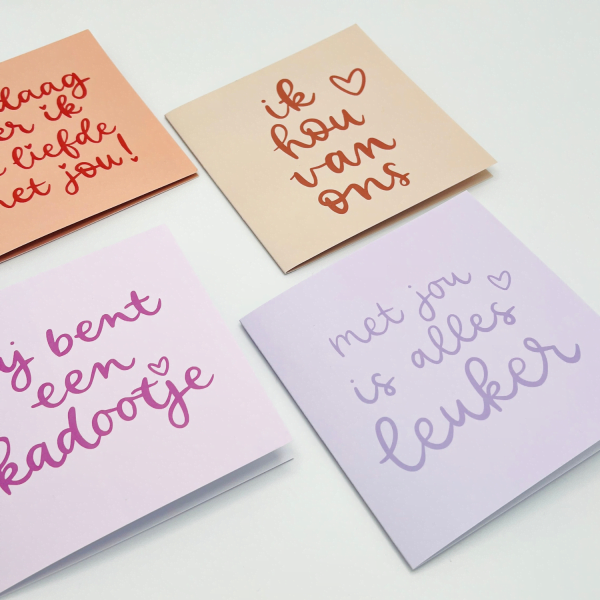 daag
ik
liefde
met jou!
ik
hou
van
ons
jij bent
een
kadootje
met jou
is alles
leuker